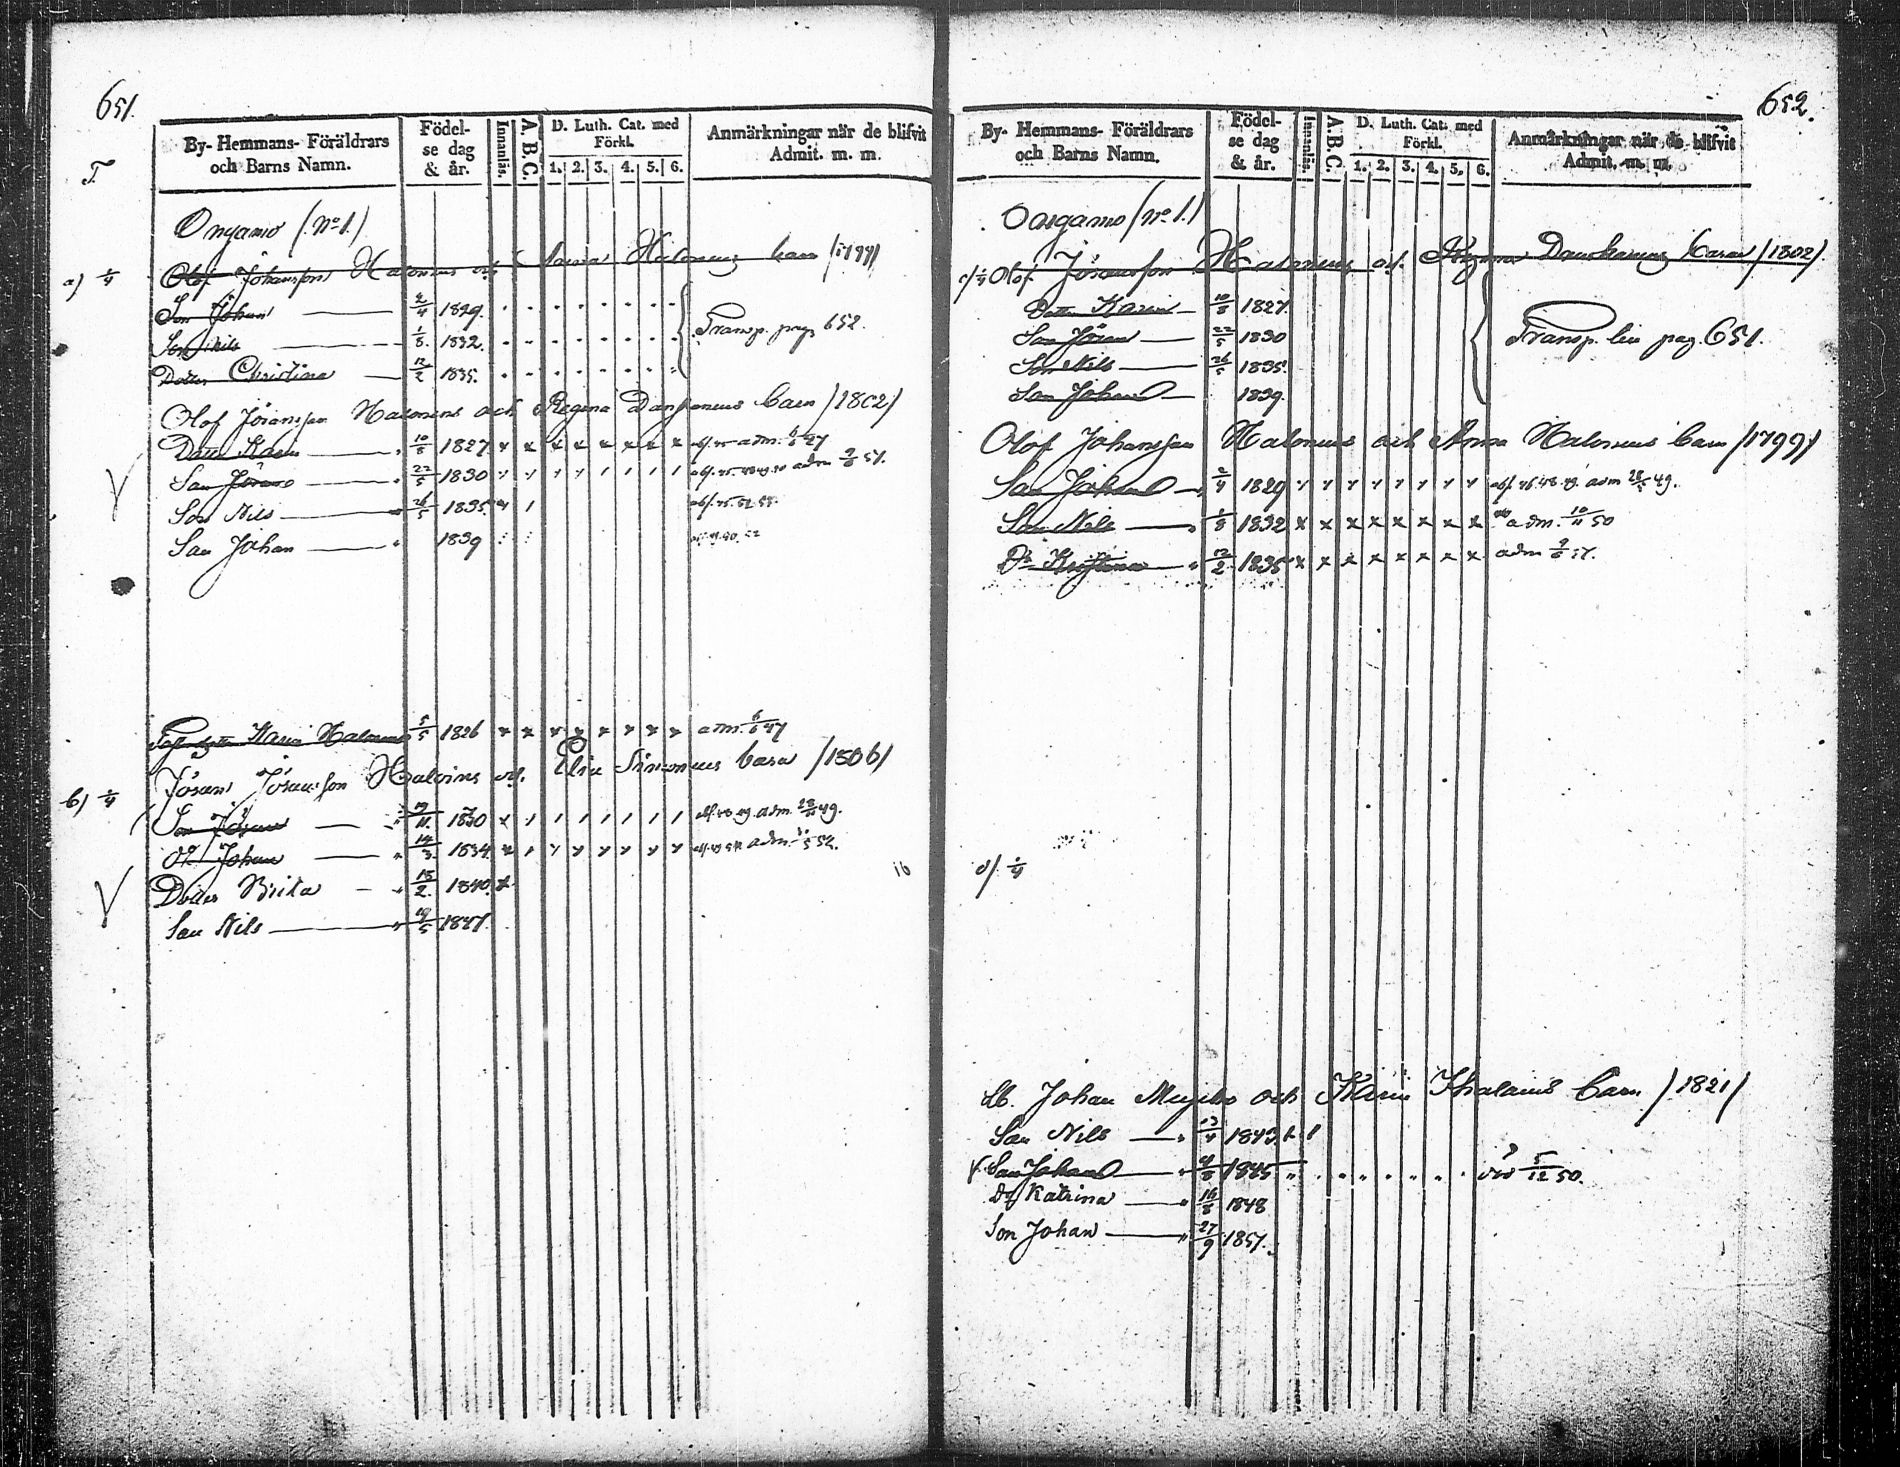 651.
T.
By- Hemmans- Föräldrars och Barns Namn.
Födel- se dag & år.
Innanläs.
A.B.C.
D. Luth. Cat. med Förkl.
1. 2. 3. 4. 5. 6.
Anmärkningar när de blifvit Admit. m. m.
Ongamo (No 1.)
a) 1/4 Olof Johansson Halonens och Anna Halonens barn /1799/
Son Johan 2/4 1829.
Son Nils 1/8 1832. Transp. pag. 652.
Dotter Christina 12/2 1835.
Olof Jöransson Halonens och Regina Danskanens barn /1802/
Dott. Karin 10/8 1827 adm. 6/6 47
Son Jöran 22/5 1830 adm 9/6 51.
Son Nils 26/5 1835
Son Johan 1839
Karin Halonen 5/5 1826 adm. 6/6 47
b) 1/4 Jöran Jöransson Halonens och Elin Simonens barn /1806/
Son Jöran 19/11 1830 adm. 49.
Dito Johan 14/3 1834 adm. 52.
Dotter Brita 15/2 1840.
Son Nils 19/5 1847.
652.
By- Hemmans- Föräldrars och Barns Namn.
Födel- se dag & år.
Innanläs.
A.B.C.
D. Luth. Cat. med Förkl.
1. 2. 3. 4. 5. 6.
Anmärkningar när de blifvit Admit. m. m.
Ongamo (No 1.)
c) 1/4 Olof Jöransson Halonens och Regina Danskanens barn /1802/.
Dotter Karin 10/8 1827.
Son Jöran 22/5 1830 Transp. till pag. 651.
Son Nils 26/5 1835
Son Johan 1839.
Olof Johansson Halonens och Anna Halonens barn /1799/
Son Johan 2/4 1829 adm 49.
Son Nils 1/8 1832 adm. 50
Dr Kristina 12/2 1835 adm 9/6 51.
d) 1/4
Johan och Karin barn /1821/
Son Nils 13/4 1843
Son Johan 4/8 1845 död 5/12 50.
Dr Katrina 16/8 1848
Son Johan 27/9 1851.